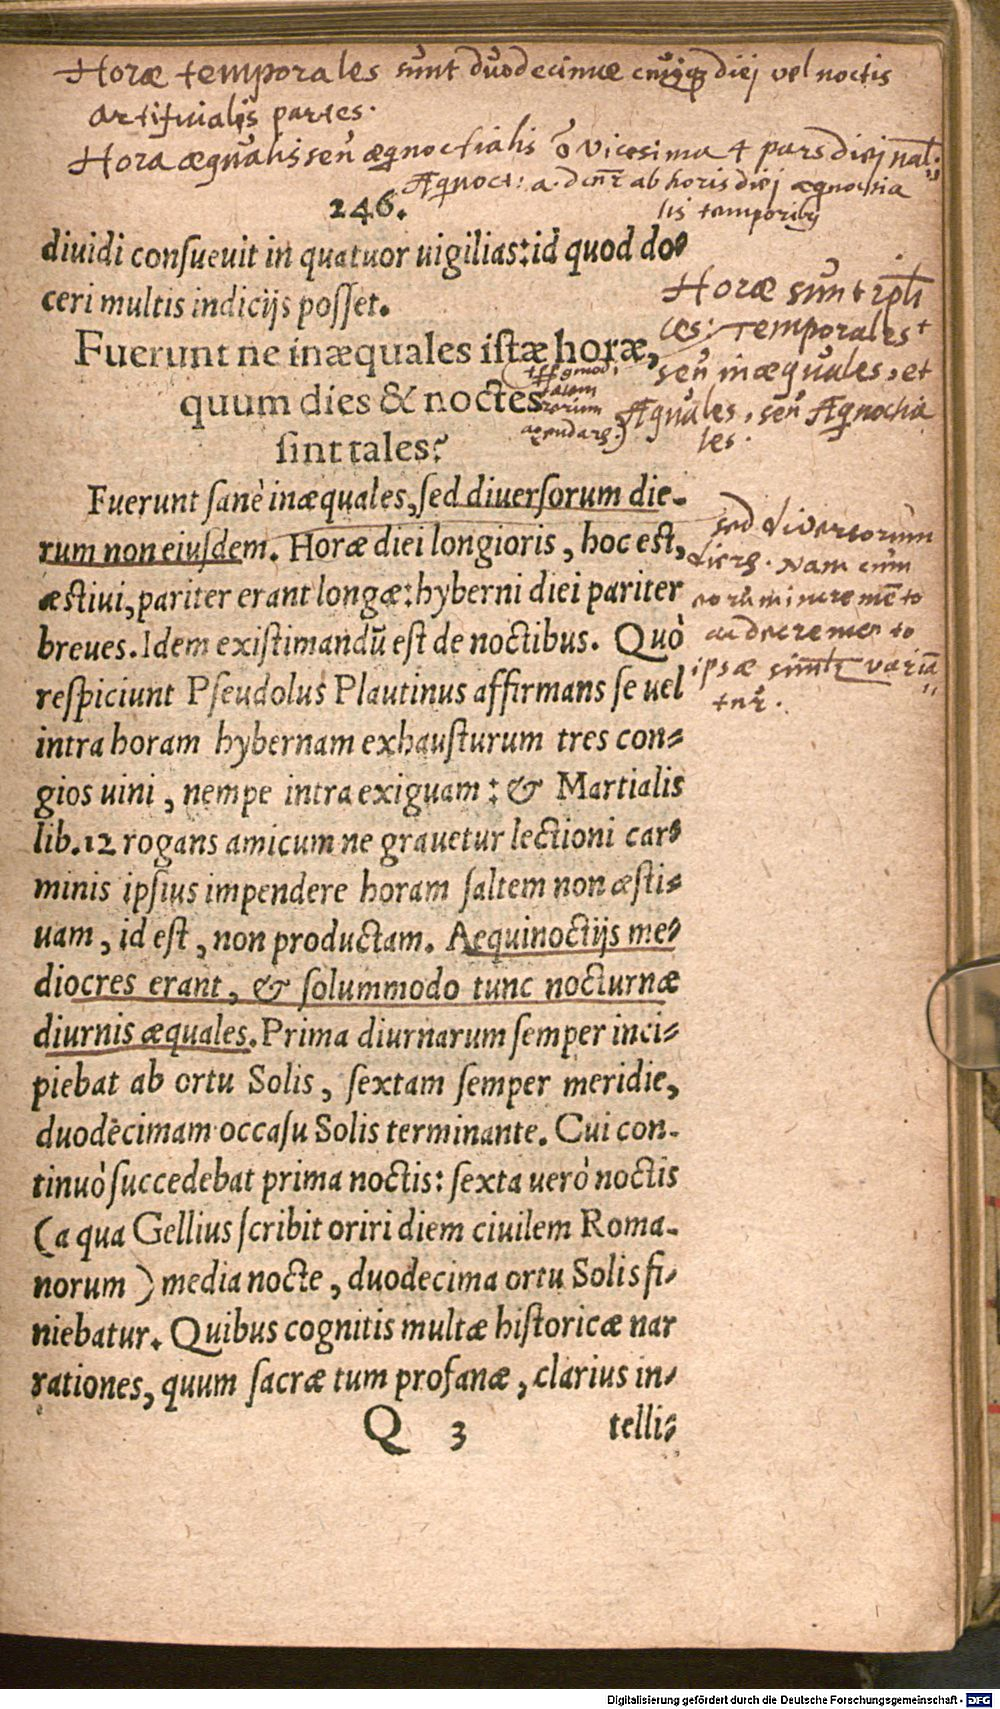 Horæ temporales sunt duodecimæ cuiusque diei vel noctis
artificialis partes.
Hora æqualis seu æqnoctialis vicesima 4 pars diei nal.
ab horis diei æqnoctia
lis temporibus
246.
diuidi consueuit in quatuor uigilias: id quod do⸗
ceri multis indicijs posset.
Fuerunt ne inæquales istæ horæ,
quum dies & noctes
sint tales?
Horæ sunt
ces: Temporales
seu inæquales, et
Æquales, seu Æqnoctia
les.
Fuerunt sanè inæquales, sed diuersorum die-
rum non eiusdem. Horæ diei longioris, hoc est,
æstiui, pariter erant longæ: hyberni diei pariter
breues. Idem existimandũ est de noctibus. Quò
respiciunt Pseudolus Plautinus affirmans se uel
intra horam hybernam exhausturum tres con⸗
gios uini, nempe intra exiguam: & Martialis
lib. 12 rogans amicum ne grauetur lectioni car⸗
minis ipsius impendere horam saltem non æsti⸗
uam, id est, non productam. Aequinoctijs me⸗
diocres erant, & solummodo tunc nocturnæ
diurnis æquales. Prima diurnarum semper inci⸗
piebat ab ortu Solis, sextam semper meridie,
duodecimam occasu Solis terminante. Cui con-
tinuò succedebat prima noctis: sexta uerò noctis
(a qua Gellius scribit oriri diem ciuilem Roma-
norum) media nocte, duodecima ortu Solis fi⸗
niebatur. Quibus cognitis multæ historicæ nar
rationes, quum sacræ tum profanæ, clarius in⸗
Q 3 telli⸗
sed diversorum
Nam cum
incremẽto
ac decremento
ipsæ variã
tur.
Digitalisierung gefördert durch die Deutsche Forschungsgemeinschaft - DFG